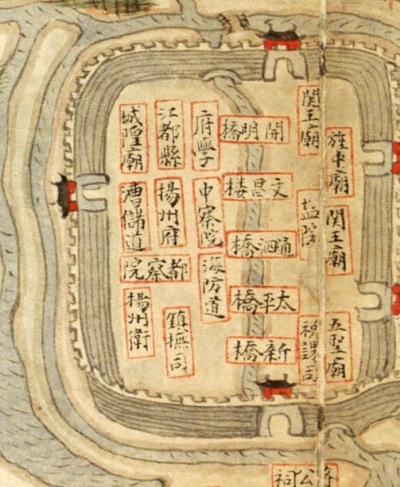 旌中廟
関王廟
五聖廟
関王廟
塩院
税課司
開明橋
文昌楼
通泗橋
太平橋
新橋
府學
中察院
海防道
江都縣
揚州府
都察院
鎮撫司
城隍廟
漕儲道
揚州衛
公祠